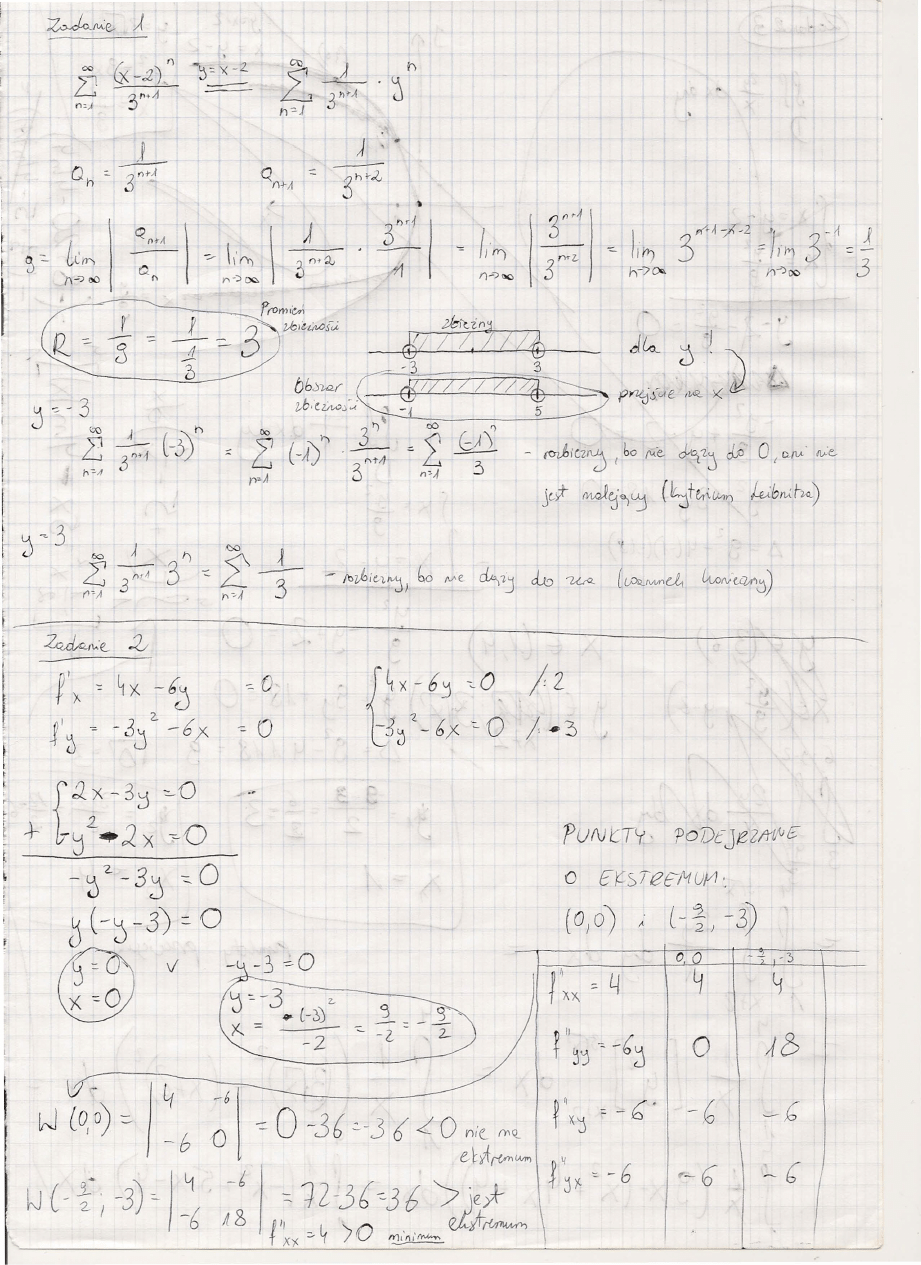 Zadanie 1
∞ ∑ n=1 (x-2)^n / 3^{n+1} y=x-2 ∞ ∑ n=1 1/3^{n+1} · y^n
a_n = 1/3^{n+1} a_{n+1} = 1/3^{n+2}
g = lim n→∞ |a_{n+1}/a_n| = lim n→∞ |1/3^{n+2} · 3^{n+1}/1| = lim n→∞ |3^{n+1}/3^{n+2}| = lim n→∞ 3^{n+1-n-2} = lim n→∞ 3^{-1} = 1/3
R = 1/g = 1/(1/3) = 3 Promień zbieżności
zbieżny
-3 3 dla y!
Obszar zbieżności -1 5 przejście na x
y = -3
∞ ∑ n=1 1/3^{n+1} (-3)^n = ∞ ∑ n=1 (-1)^n · 3^n/3^{n+1} = ∞ ∑ n=1 (-1)^n/3 - rozbieżny, bo nie dąży do 0, ani nie
jest malejący (kryterium Leibnitza)
y = 3
∞ ∑ n=1 1/3^{n+1} 3^n = ∞ ∑ n=1 1/3 - rozbieżny, bo nie dąży do zera (warunek konieczny)
Zadanie 2
f'x = 4x - 6y = 0
f'y = -3y² - 6x = 0
{ 4x - 6y = 0 /:2
-3y² - 6x = 0 /:3
{ 2x - 3y = 0
+ -y² - 2x = 0
-y² - 3y = 0
y(-y-3) = 0
y = 0 v -y-3 = 0
x = 0
y = -3
x = (-3)²/-2 = 9/-2 = -9/2
PUNKTY PODEJRZANE
O EKSTREMUM:
(0,0) i (-9/2, -3)
0,0 -9/2, -3
f''xx = 4 4 4
f''yy = -6y 0 18
f''xy = -6 -6 -6
f''yx = -6 -6 -6
W(0,0) = |4 -6
-6 0| = 0 - 36 = -36 < 0 nie ma
ekstremum
W(-9/2, -3) = |4 -6
-6 18| = 72-36 = 36 > jest
ekstremum
f''xx = 4 > 0 minimum